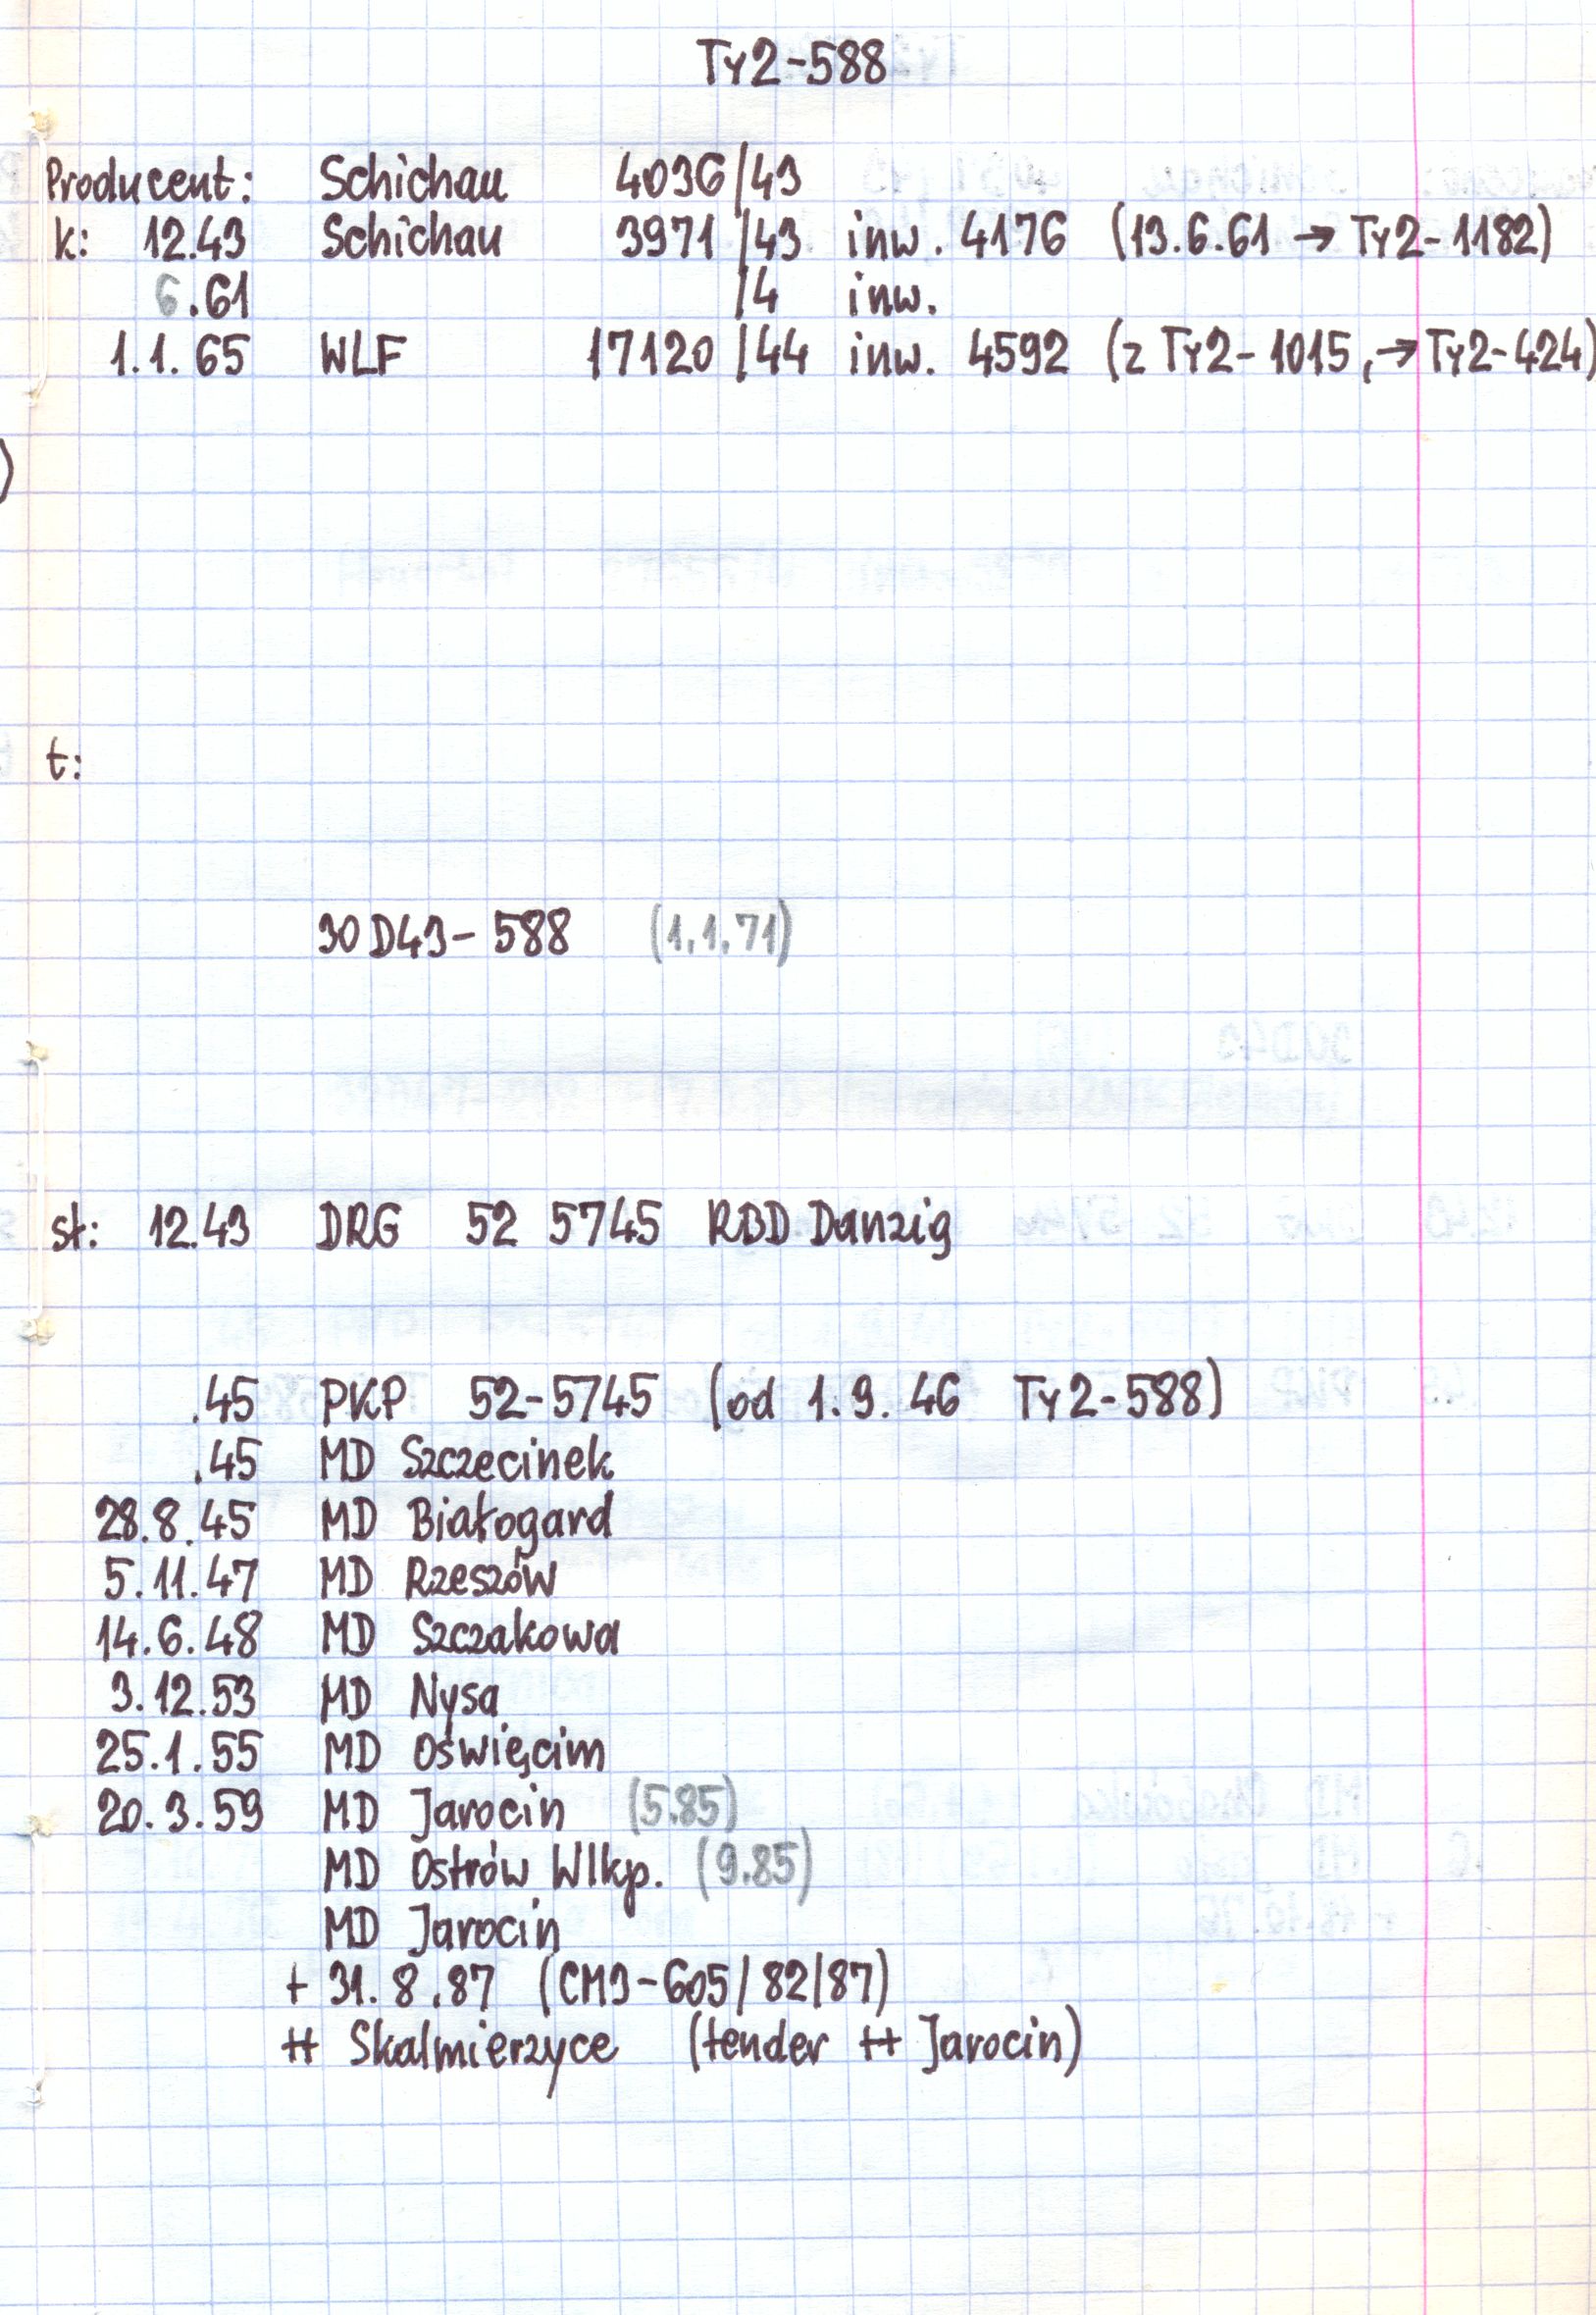 Ty2-588
Producent: Schichau 4036/43
k: 12.43 Schichau 3971/43 inw. 4176 (13.6.61 → Ty2-1182)
6.61 /4 inw.
1.1.65 WLF 17120/44 inw. 4592 (z Ty2-1015, → Ty2-424)
t:
30D43-588 (1.1.71)
st: 12.43 DRG 52 5745 RBD Danzig
.45 PKP 52-5745 (od 1.9.46 Ty2-588)
.45 MD Szczecinek
28.8.45 MD Białogard
5.11.47 MD Rzeszów
14.6.48 MD Szczakowa
3.12.53 MD Nysa
25.1.55 MD Oświęcim
20.3.59 MD Jarocin (5.85)
MD Ostrów Wlkp. (9.85)
MD Jarocin
+ 31.8.87 (CM3-605/82/87)
++ Skalmierzyce (tender ++ Jarocin)